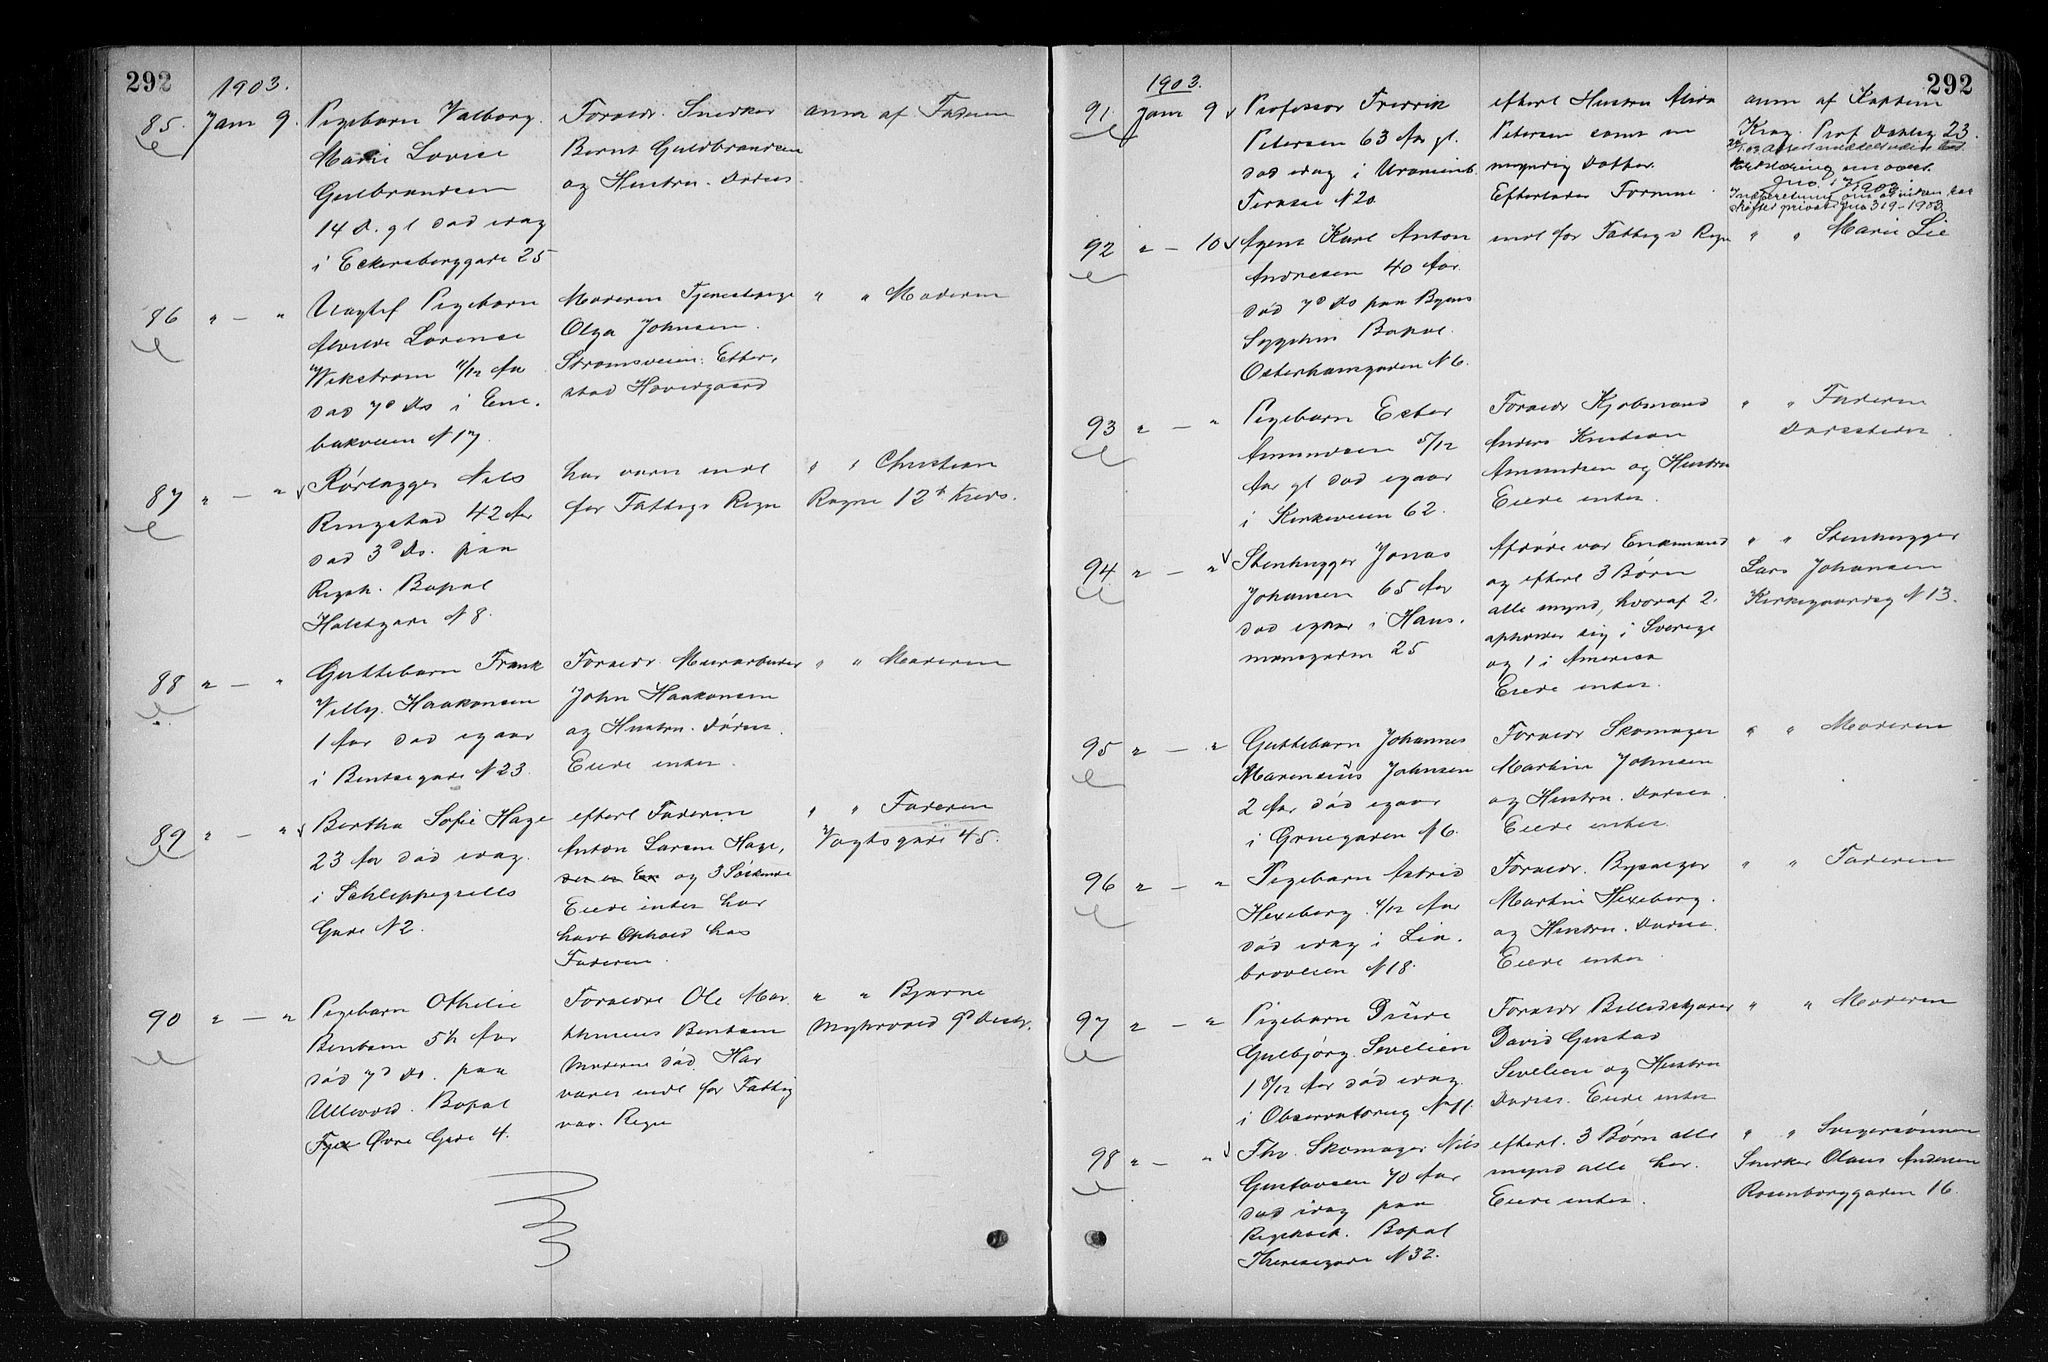 292
1903.
85. Jan 9. Pigebarn Valborg
Marie Lovise
Gulbrandsen
14 D. gl død idag
i Eckersberggade 25
Forældr. Snedker
Bernt Guldbrandsen
og Hustru. Dødss
anm af Faderen
86 " — " Uægtef Pigebarn
Alvilde Lorense
Wikstrøm 11/12 Aar
død 7d Ds i Ene-
bakveien N 17
Moderen Tjenestepige
Olga Johnsen.
Strømsveien. Etter-
stad Hovergaard
" " Moderen
87 " — " Rørlægger Nils
Ringstad 42 Aar
død 3d Ds. paa
Rigsh. Bopæl
Holstgade N 8.
har været indl
for Fattigv Regn
" " Christian
Ragne 12te Kreds.
88 " — " Guttebarn Frank
Willy Haakonsen
1 Aar død igaar
i Bentsegade N 23.
Forældr. Murarbeider
John Haakonsen
og Hustru. Dødss.
Eiede intet.
" " Moderen
89 " — " Bertha Sofie Hage
23 Aar død idag.
i Schleppegrells
Gade N 2.
efterl Faderen
Anton Larsen Hage,
og 3 Søskende
Eiede intet har
havt Ophold hos
Faderen.
" " Faderen
Vogtsgade 45.
90 " — " Pigebarn Othilie
Bentsen 5½ Aar
død 7d Ds. paa
Ullevold. Bopæl
Øvre Gade 4.
Forældre Ole Mar-
thinius Bentsen
Moderen død. Har
været indl for Fattig
væs. Regn
" " Bjarne
Myhrvold 9d Distr.
292
1903.
91. Jan 9 Professor Fredrik
Petersen 63 Aar gl.
død idag i Uranienb.
Terasse N 20.
efterl Hustru Alvira
Petersen samt en
myndig Datter.
Efterlader Formue.
anm af Kaptein
Krag. Prof Dahlsg 23.
Indberetning om at Enken har
skiftet privat Jno 319-1903
92 " — 10 Agent Karl Anton
Andresen 40 Aar.
død 7d Ds paa Byens
Sygehus Bopæl.
Osterhausgaden N 6.
indl for Fattigv Regn
" " Marie Lie
93 " — " Pigebarn Ester
Amundsen 5/12
Aar gl død igaar
i Kirkeveien 62.
Forældr Kjøbmand
Anders Kristian
Amundsen og Hustru
Eiede intet.
" " Faderen
Dødsstedet.
94 " — " Stenhugger Jonas
Johansen 65 Aar
død igaar i Haus-
mansgaden 25
Afdøde var Enkemand
og efterl 3 Børn
alle mynd, hvoraf 2.
opholder sig i Sverige
og 1 i Amerika
Eiede intet.
" " Stenhugger
Lars Johansen
Kirkegaardsg N 13.
95 " — " Guttebarn Johannes
Marensius Johnsen
2 Aar død igaar
i Grnegaden N 6.
Forældr Skomager
Martin Johnsen
og Hustru. Dødss.
Eiede intet.
" " Moderen
96 " — " Pigebarn Astrid
Hexeberg. 4/12 Aar
død idag i Lia-
broveien N 18.
Forældr. Bysælger
Martin Hexeberg.
og Hustru. Dødss.
Eiede intet.
" " Faderen
97 " — " Pigebarn
Gulbjørg Sevelien
1 8/12 Aar død idag.
i Observatorieg N 11.
Forældr Billedskjærer
David Gustad
Sevelien og Hustru
Dødss. Eiede intet
" " Moderen
98 " — " Fhv. Skomager Nils
Gustavsen 70 Aar
død idag paa
Rigshosp. Bopæl
Theresegade N 32.
efterl. 3 Børn alle
mynd alle her.
Eiede intet.
" " Svigersønnen
Snedker Olaus Andersen
Rosenborggaden 16.